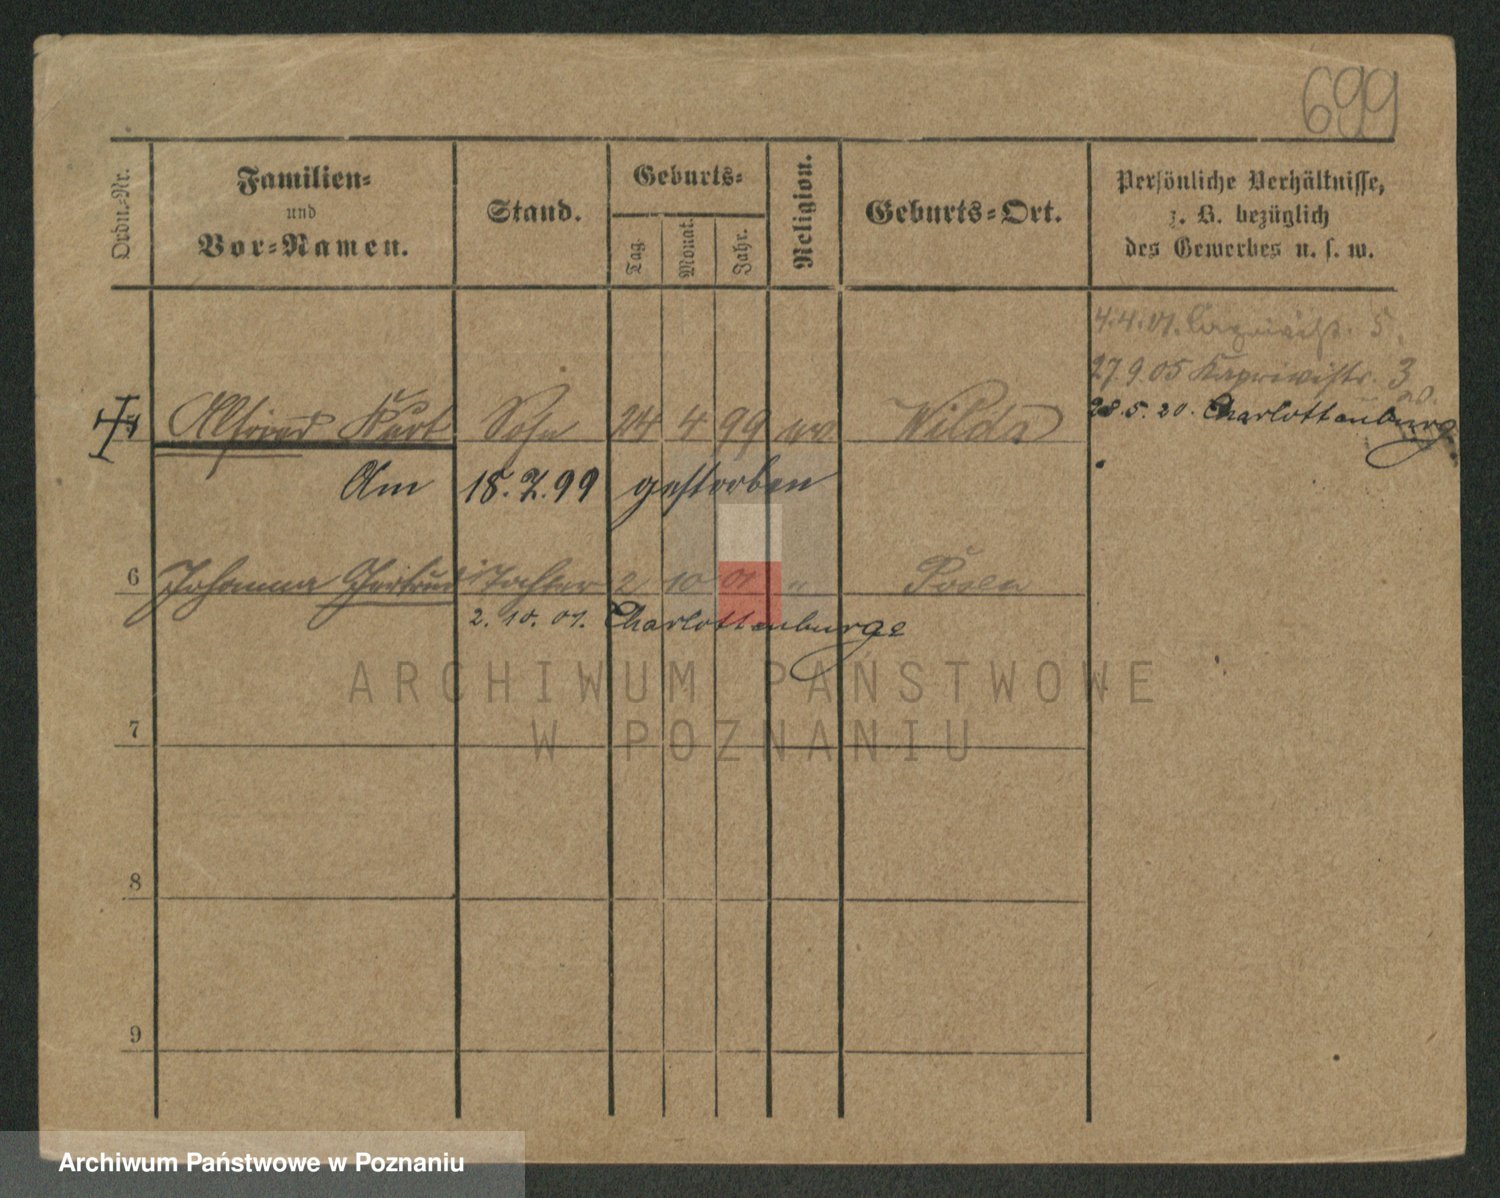 699
Ordn.-Nr.
Familien-
und
Vor-Namen.
Stand.
Geburts-
Tag.
Monat.
Jahr.
Religion.
Geburts-Ort.
Persönliche Verhältnisse,
z. B. bezüglich
des Gewerbes u. s. w.
4.4.01. 5.
27.9.05 Kapriwistr. 3
28.5.20. Charlottenburg
Alfried Kurt Sohn 24 4 99 ev Wilda
Am 18.7.99 gestorben
6 Johanna Gertrud Tochter 2 10 01 " Posen
2.10.07. Charlottenburg
7
8
9
ARCHIWUM PAŃSTWOWE
W POZNANIU
Archiwum Państwowe w Poznaniu